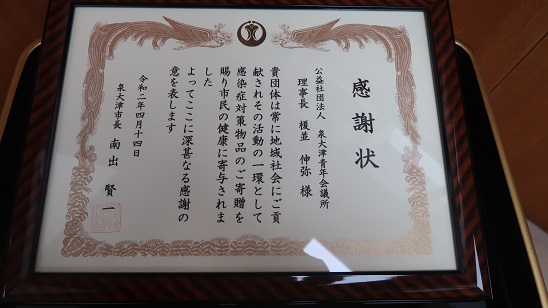 感謝状
公益社団法人 泉大津青年会議所
理事長 榎並 伸弥 様
貴団体は常に地域社会にご貢
献されその活動の一環として
感染症対策物品のご寄贈を
賜り市民の健康に寄与されま
した
よってここに深甚なる感謝の
意を表します
令和二年四月十四日
泉大津市長 南出 賢一